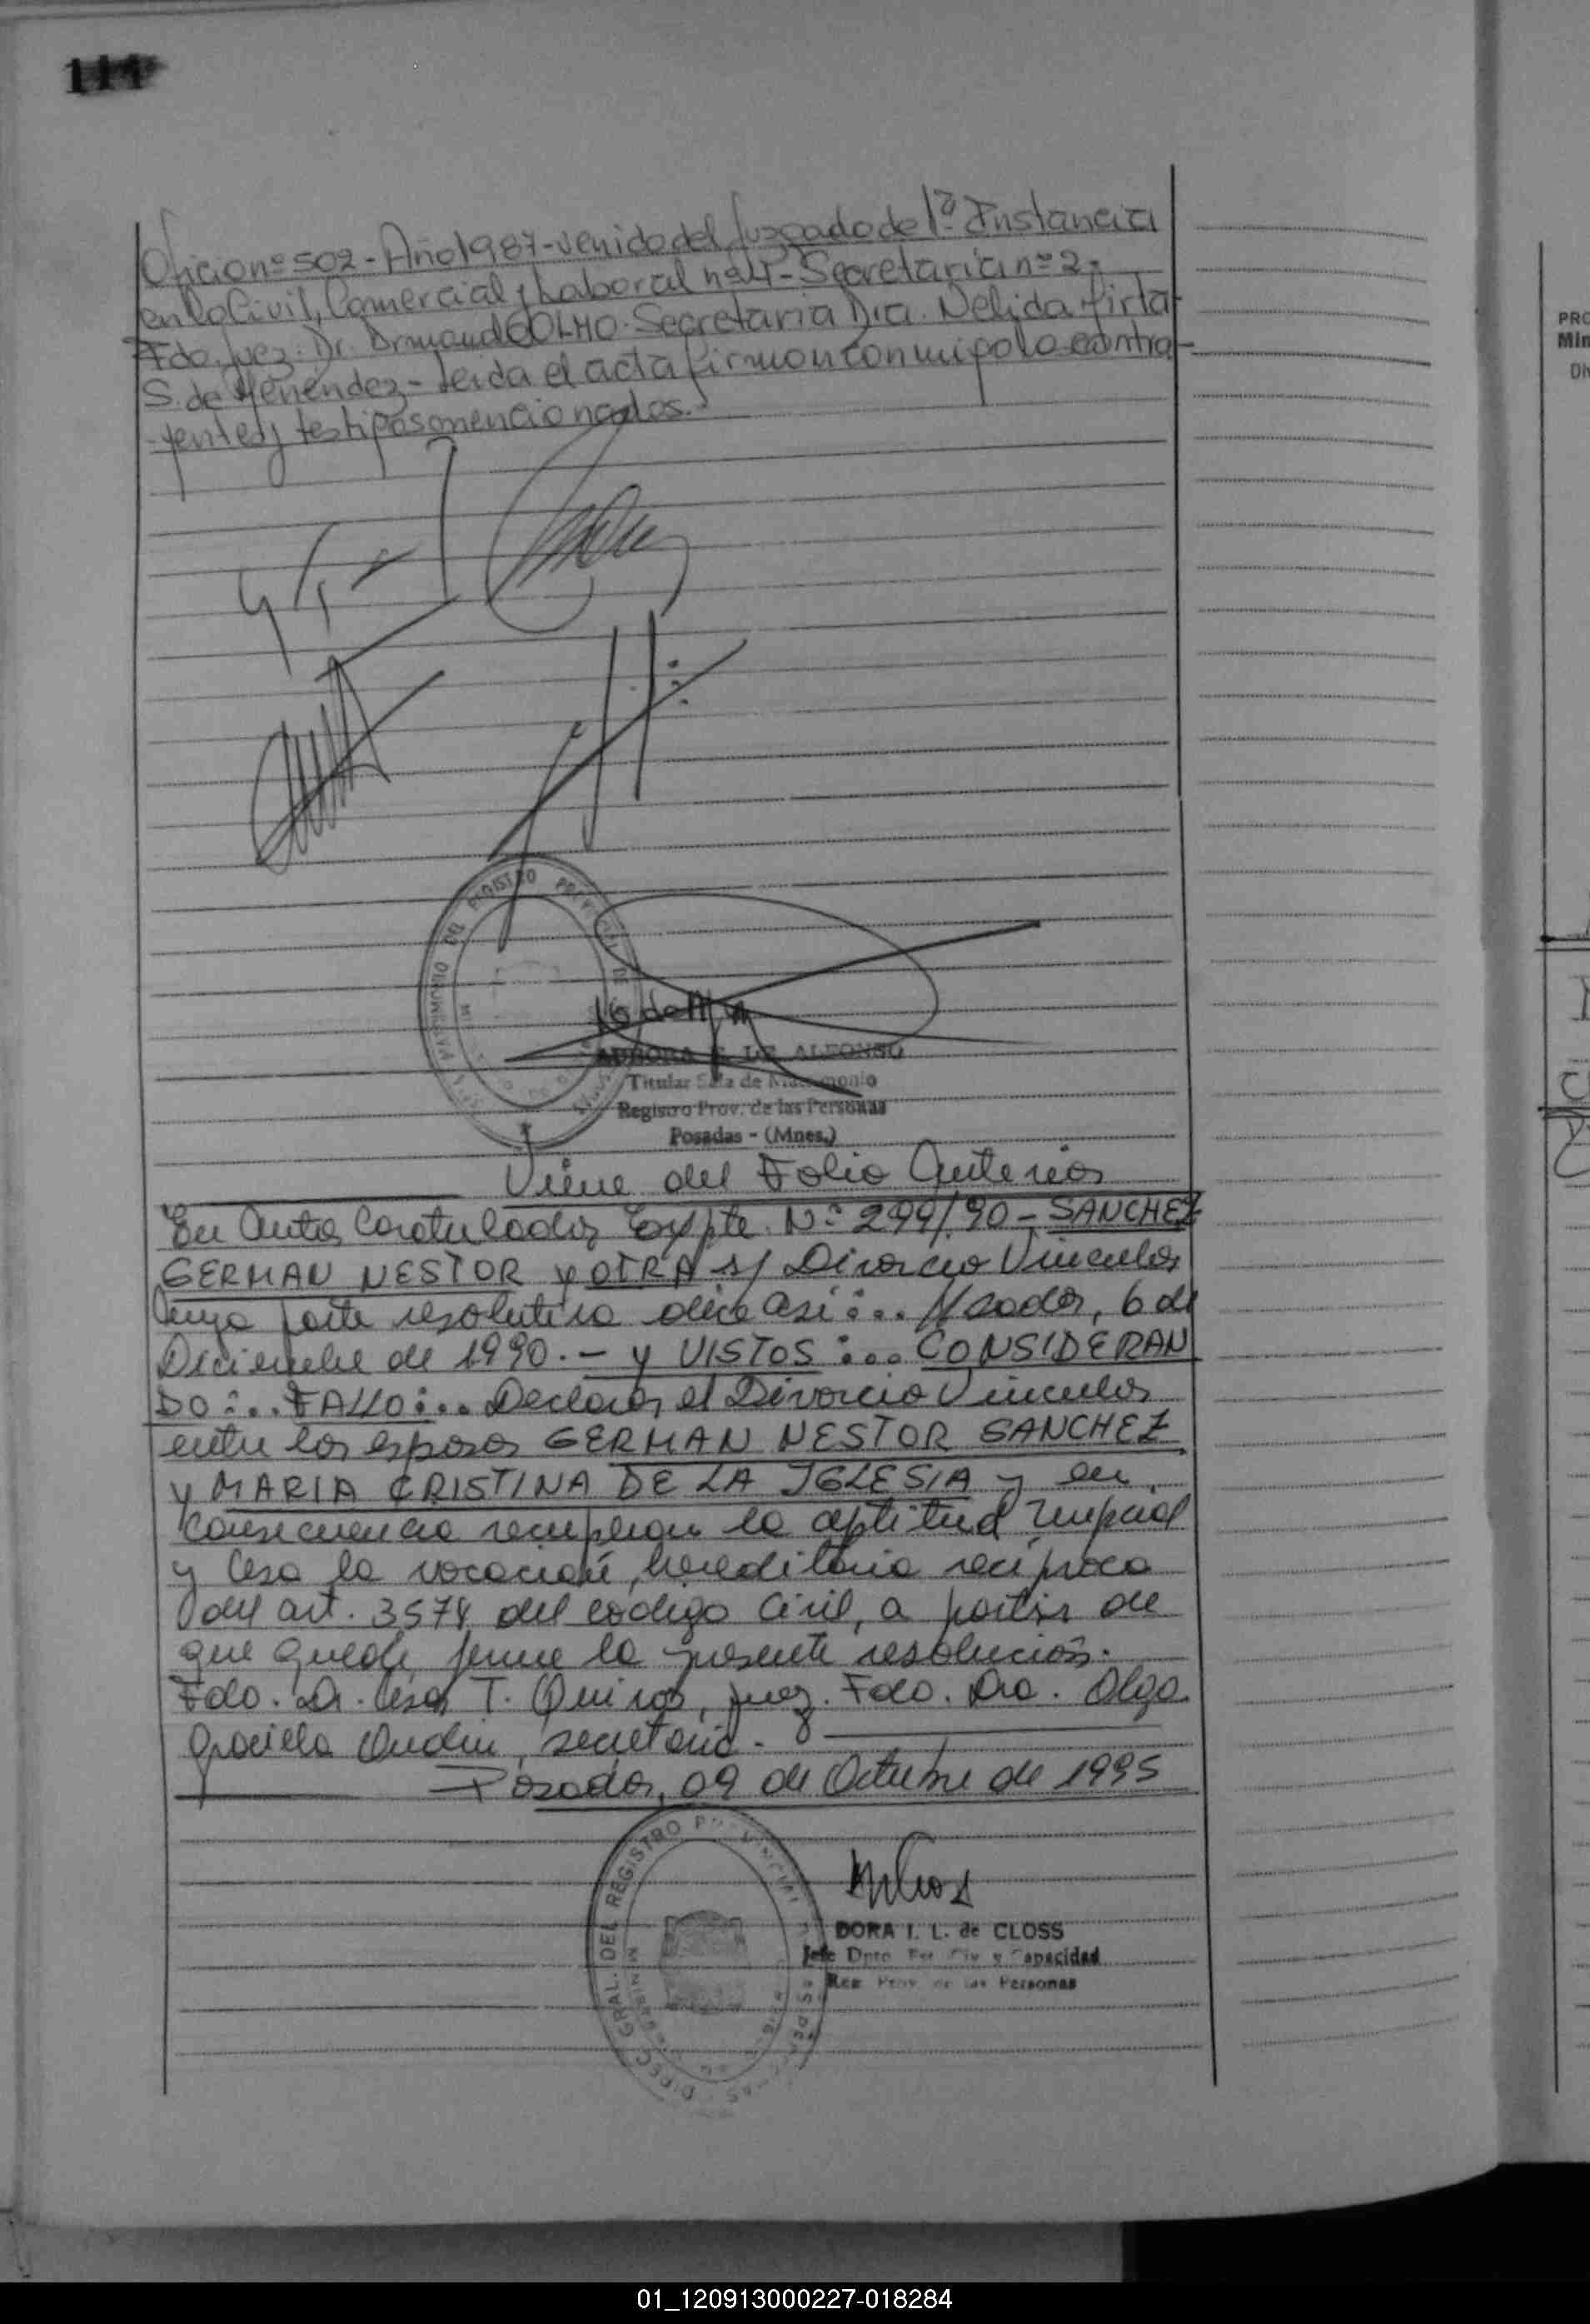 Oficio nº 502 - Año 1987 - venido del Juzgado de 1ª Instancia
en lo Civil, Comercial y Laboral nº 4 - Secretaría nº 2 -
Fdo. Juez. Dr. COLMO. Secretaria Dra. Nelida Mirta
S. de Menendez - Leida el acta firman conmigo lo contra-
-yentes y testigos mencionados.-
DEL REGISTRO
16 de
AURORA DE ALFONSO
Titular Sala de Matrimonio
Registro Prov. de las Personas
Posadas - (Mnes.)
Viene del Folio Anterior
En Autos Caratulados Expte. Nº 299/90 - SANCHEZ
GERMAN NESTOR y OTRA s/ Divorcio Vincular
Cuya parte resolutiva dice asi:... Posadas, 6 de
Diciembre de 1990.- y VISTOS:... CONSIDERAN
DO:... FALLO:... Declarar el Divorcio Vincular
entre los esposos GERMAN NESTOR SANCHEZ
y MARIA CRISTINA DE LA IGLESIA y en
consecuencia recuperan la aptitud nupcial
y cesa la vocación hereditaria reciproca
del art. 3574 del codigo Civil, a partir de
que quede firme la presente resolución.
Fdo. Dr. Cesar T. Quiros, Juez. Fdo. Dra. Olga
Graciela secretaria.-
Posadas, 09 de Octubre de 1995
DIREC. GRAL. DEL REGISTRO
DORA I. L. de CLOSS
Jefe Dpto. Est. Civ. y Capacidad
Reg. Prov. de las Personas
PRO
Min
Di
01_120913000227-018284